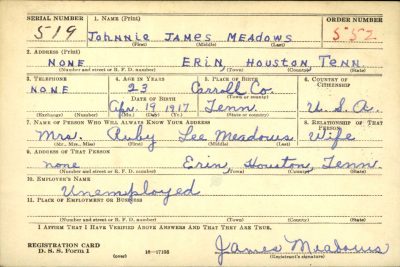 SERIAL NUMBER 1. Name (Print) ORDER NUMBER
519 Johnnie JAMES MEADOWS 552
(First) (Middle) (Last)
2. Address (Print)
NONE Erin Houston Tenn.
(Number and street or R. F. D. number) (Town) (County) (State)
3. Telephone 4. Age in Years 5. Place of Birth 6. Country of Citizenship
NONE 23 Carroll Co.
Date of Birth (Town or county)
Apr. 19 1917 Tenn U.S.A.
(Exchange) (Number) (Mo.) (Day) (Yr.) (State or country)
7. Name of Person Who Will Always Know Your Address 8. Relationship of That Person
Mrs. Ruby Lee Meadows Wife
(Mr., Mrs., Miss) (First) (Middle) (Last)
9. Address of That Person
none Erin, Houston, Tenn.
(Number and street or R. F. D. number) (Town) (County) (State)
10. Employer's Name
Unemployed
11. Place of Employment or Business
(Number and street or R. F. D. number) (Town) (County) (State)
I Affirm That I Have Verified Above Answers and That They Are True.
Registration Card
D. S. S. Form 1 (over) 16—17105 James Meadows
(Registrant's signature)